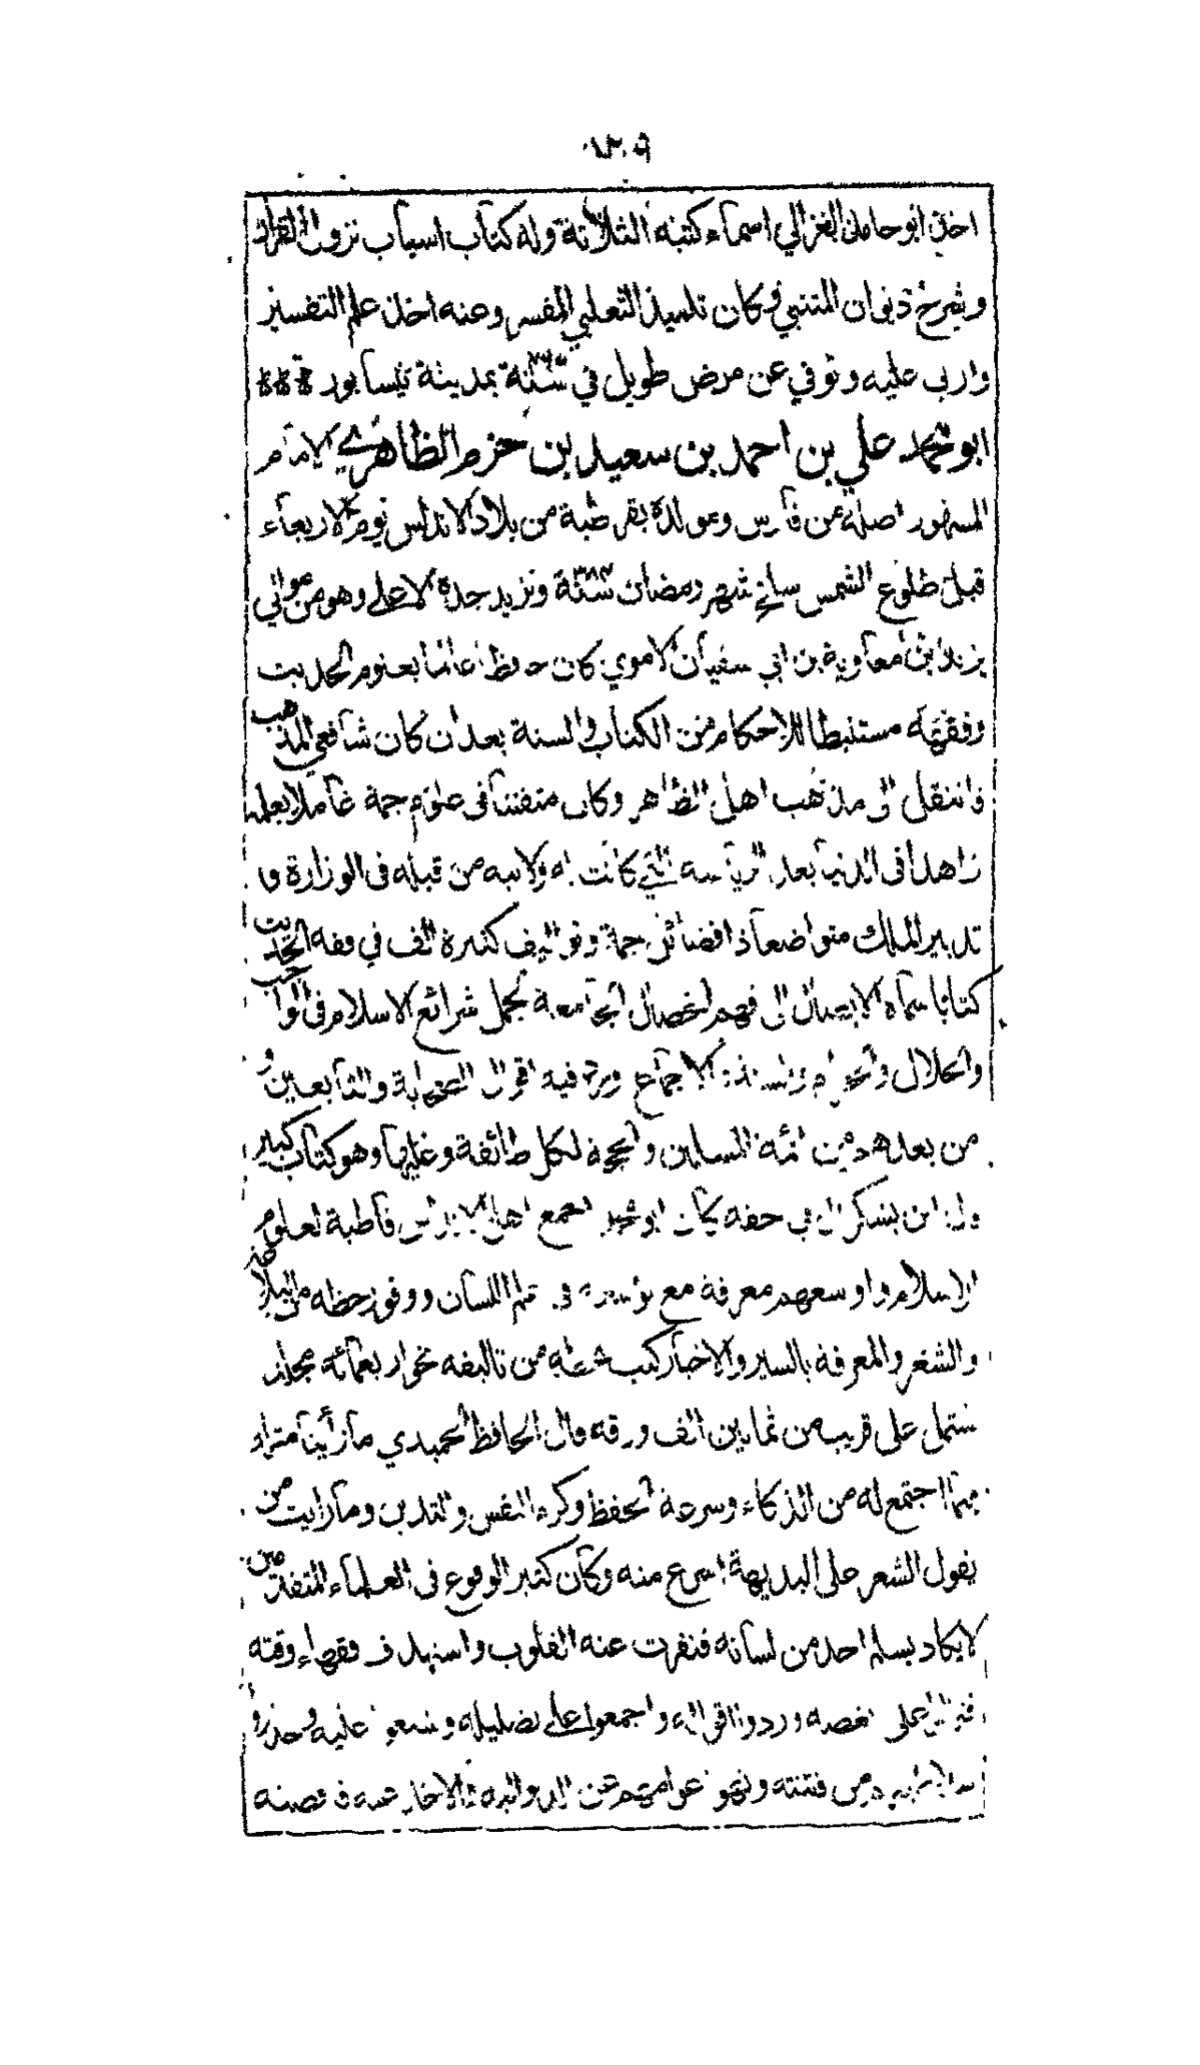 اخذ ابو حامد الغزالي اسماء كتبه الثلاثة وله كتاب اسباب نزول القران
وشرح ديوان المتنبي وكان تلميذ الثعلبي المفسر وعنه اخذ علم التفسير
واربى عليه وتوفي عن مرض طويل في سنة بمدينة نيسابور
ابو محمد علي بن احمد بن سعيد بن حزم الظاهري الامام
المشهور اصله من فارس ومولده بقرطبة من بلاد الاندلس يوم الاربعاء
قبل طلوع الشمس سلخ شهر رمضان سنة ٣٨٤ ويزيد جده الاعلى وهو من موالي
يزيد ابن معاوية بن ابي سفيان الاموي كان حافظا عالما بعلوم الحديث
وفقهه مستنبطا للاحكام من الكتاب والسنة بعد ان كان شافعي المذهب
فانتقل الى مذهب اهل الظاهر وكان متفننا في علوم جمة عاملا بعلمه
زاهدا في الدنيا بعد الرياسة التي كانت له ولابيه من قبله في الوزارة و
تدبير الملك متواضعا ذا فضائل جمة وتواليف كثيرة الف في فقه الحديث
كتابا سماه الايصال الى فهم الخصال الجامعة لجمل شرائع الاسلام في الواجب
والحلال والحرام والسنة والاجماع ورد فيه اقوال الصحابة والتابعين و
من بعدهم من ائمة المسلمين والحجة لكل طائفة وعليها وهو كتاب كبير
وله ابن بشكوال في حقه كان ابو محمد اجمع اهل الاندلس قاطبة لعلوم
الاسلام واوسعهم معرفة مع توسعه في علم اللسان ووفور حظه من البلاغة
والشعر والمعرفة بالسير والاخبار كتب بخطه من تاليفه نحو اربعمائة مجلد
تشتمل على قريب من ثمانين الف ورقة قال الحافظ الحميدي ما رأينا مثله
فيما اجتمع له من الذكاء وسرعة الحفظ وكرم النفس والتدين وما رايت من
يقول الشعر على البديهة اسرع منه وكان كثير الوقوع في العلماء المتقدمين
لا يكاد يسلم احد من لسانه فنفرت عنه القلوب واستهدف فقهاء وقته
فتمالؤا على بغضه وردوا اقواله واجمعوا على تضليله وشنعوا عليه وحذروا
سلاطينهم من فتنته ونهوا عوامهم عن الدنو اليه والاخذ عنه فاقصته